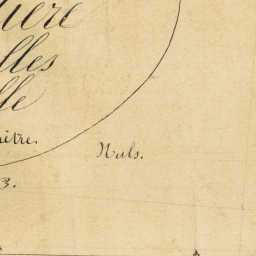 ière
lles
lle
ètre.
Nuls.
3.